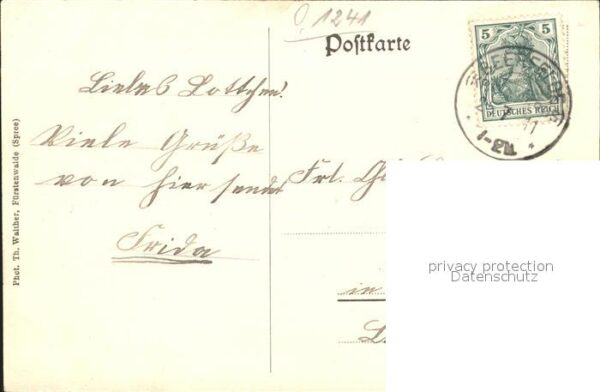 1241
Postkarte
5 5
DEUTSCHES REICH
Liebes Lottchen!
Viele Grüße
von hier sendet
Frida
Frl.
in
Phot. Th. Walther, Fürstenwalde (Spree)
privacy protection
Datenschutz